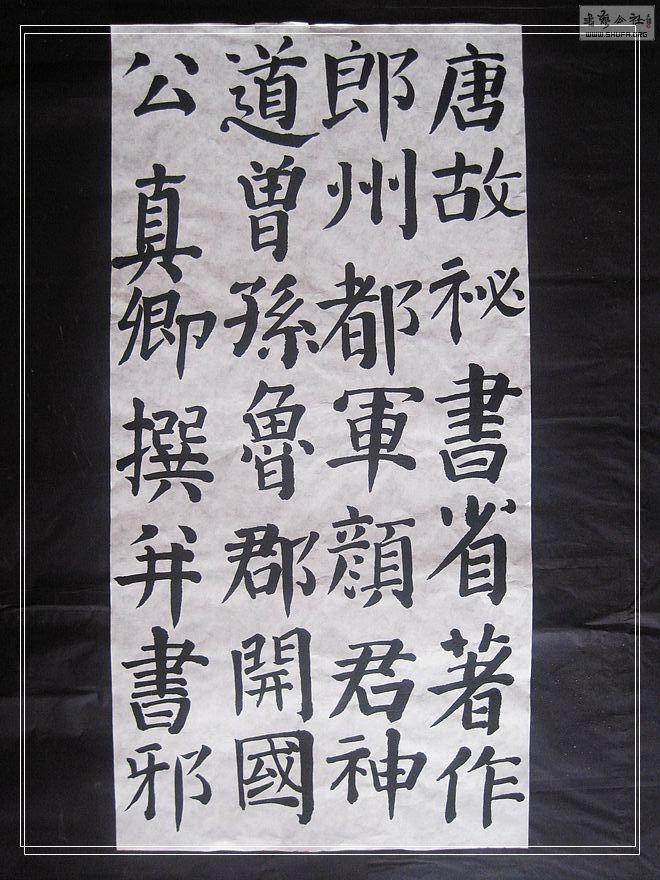 唐故祕書省著作
郎州都軍顔君神
道曾孫魯郡開國
公真卿撰并書邪
WWW.SHUFA.ORG